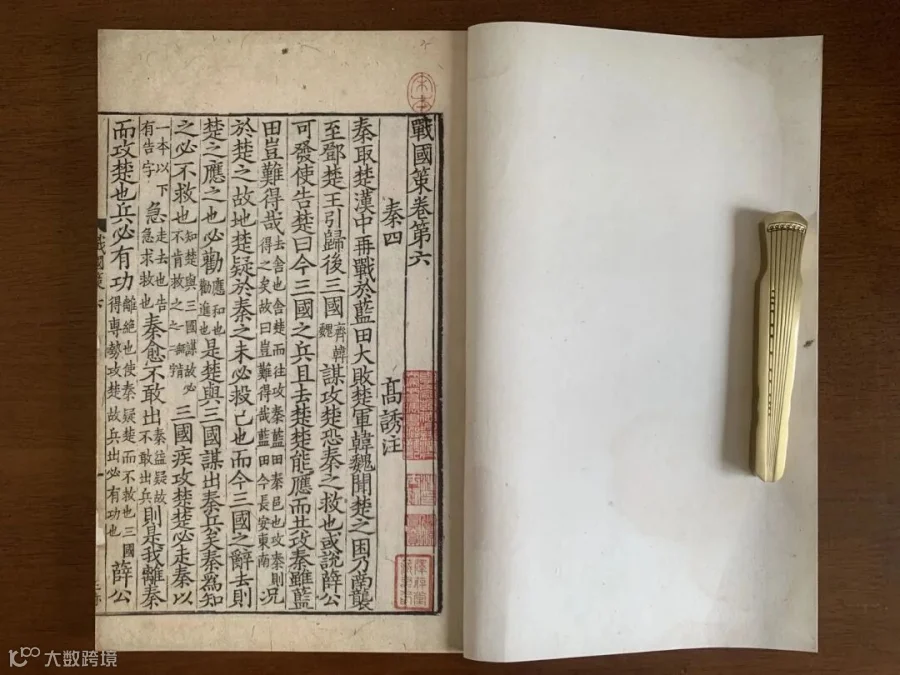 戰國策卷第六
秦四 高誘注
秦取楚漢中再戰於藍田大敗楚軍韓魏聞楚之困乃南襲
至鄧楚王引歸後三國齊韓魏謀攻楚恐秦之救也或說薛公
可發使告楚曰今三國之兵且去楚楚能應而共攻秦雖藍
田豈難得哉去舍也舍楚而往攻秦藍田秦邑也攻秦則得之矣故曰豈難得哉藍田今長安東南況
於楚之故地楚疑於秦之未必救己也而今三國之辭去則
楚之應之也必勸應和也勸進也是楚與三國謀出秦兵矣秦為知
之必不救也知楚與三國謀故必不肯救之之一無三國疾攻楚楚必走秦以
一本以下有告字急走去也告急求救也秦愈不敢出秦益疑故不敢出兵則是我離秦
而攻楚也兵必有功離絕也使秦疑楚而不救也三國得專勢攻楚故兵出必有功也薛公
大数跨境